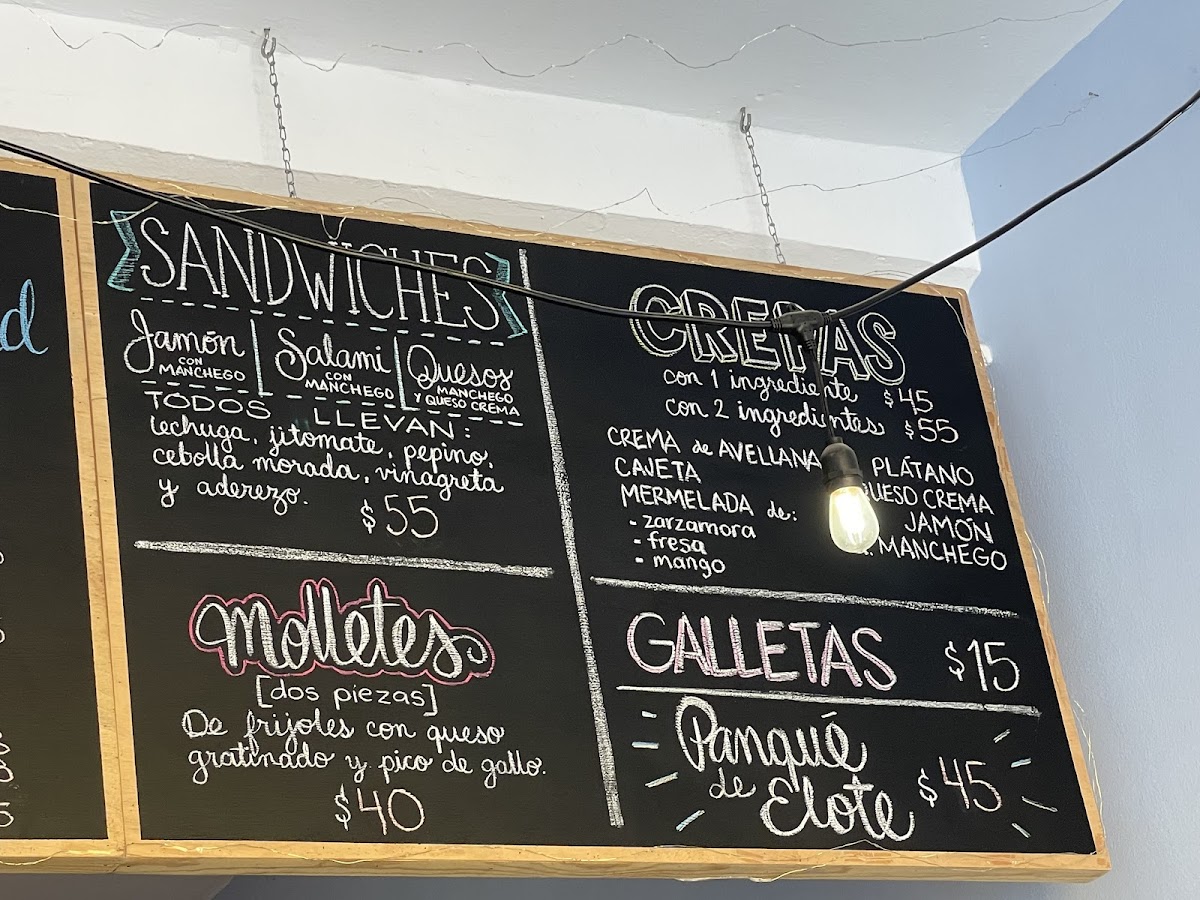 SANDWICHES
Jamón
CON
MANCHEGO
Salami
CON
MANCHEGO
Quesos
MANCHEGO
Y QUESO CREMA
TODOS LLEVAN:
lechuga, jitomate, pepino,
cebolla morada, vinagreta
y aderezo.
$55
Molletes
[dos piezas]
De frijoles con queso
gratinado y pico de gallo.
$40
CREPAS
con 1 ingrediente $45
con 2 ingredientes $55
CREMA de AVELLANA
CAJETA
MERMELADA de:
- zarzamora
- fresa
- mango
PLÁTANO
QUESO CREMA
JAMÓN
MANCHEGO
GALLETAS $15
Panqué
de Elote $45